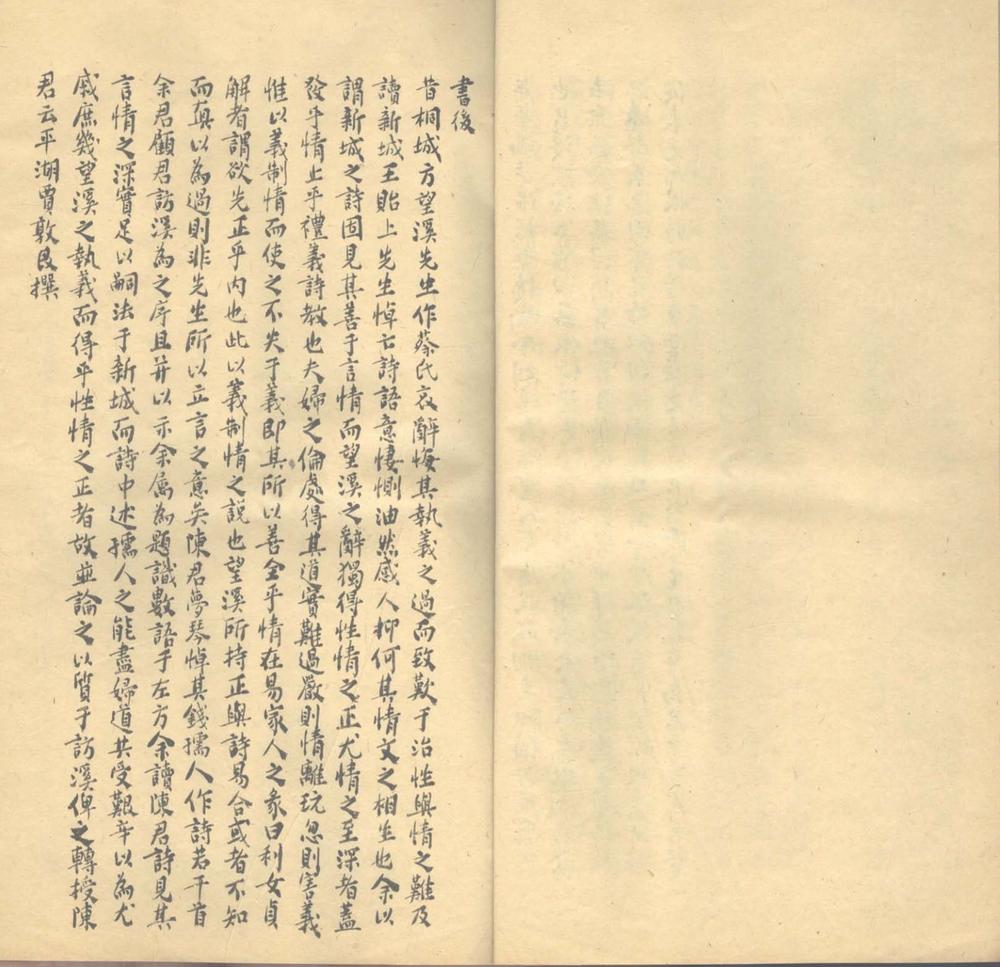 書後
昔桐城方望溪先生作蔡氏哀辭悔其執義之過而致歎于治性與情之難及
讀新城王貽上先生悼亡詩語意悽惻油然感人抑何其情文之相生也余以
謂新城之詩固見其善于言情而望溪之辭獨得性情之正尤情之至深者蓋
發乎情止乎禮義詩教也夫婦之倫處得其道實難過嚴則情離玩忽則害義
惟以義制情而使之不失于義即其所以善全乎情在易家人之彖曰利女貞
解者謂欲先正乎內也此以義制情之説也望溪所持正與詩易合或者不知
而真以為過則非先生所以立言之意矣陳君夢琴悼其錢孺人作詩若干首
余君顧君訪溪為之序且并以示余属為題識數語于左方余讀陳君詩見其
言情之深實足以嗣法于新城而詩中述孺人之能盡婦道共受艱辛以為尤
戚庶幾望溪之執義而得乎性情之正者故並論之以質于訪溪俾之轉授陳
君云平湖賈敦艮撰